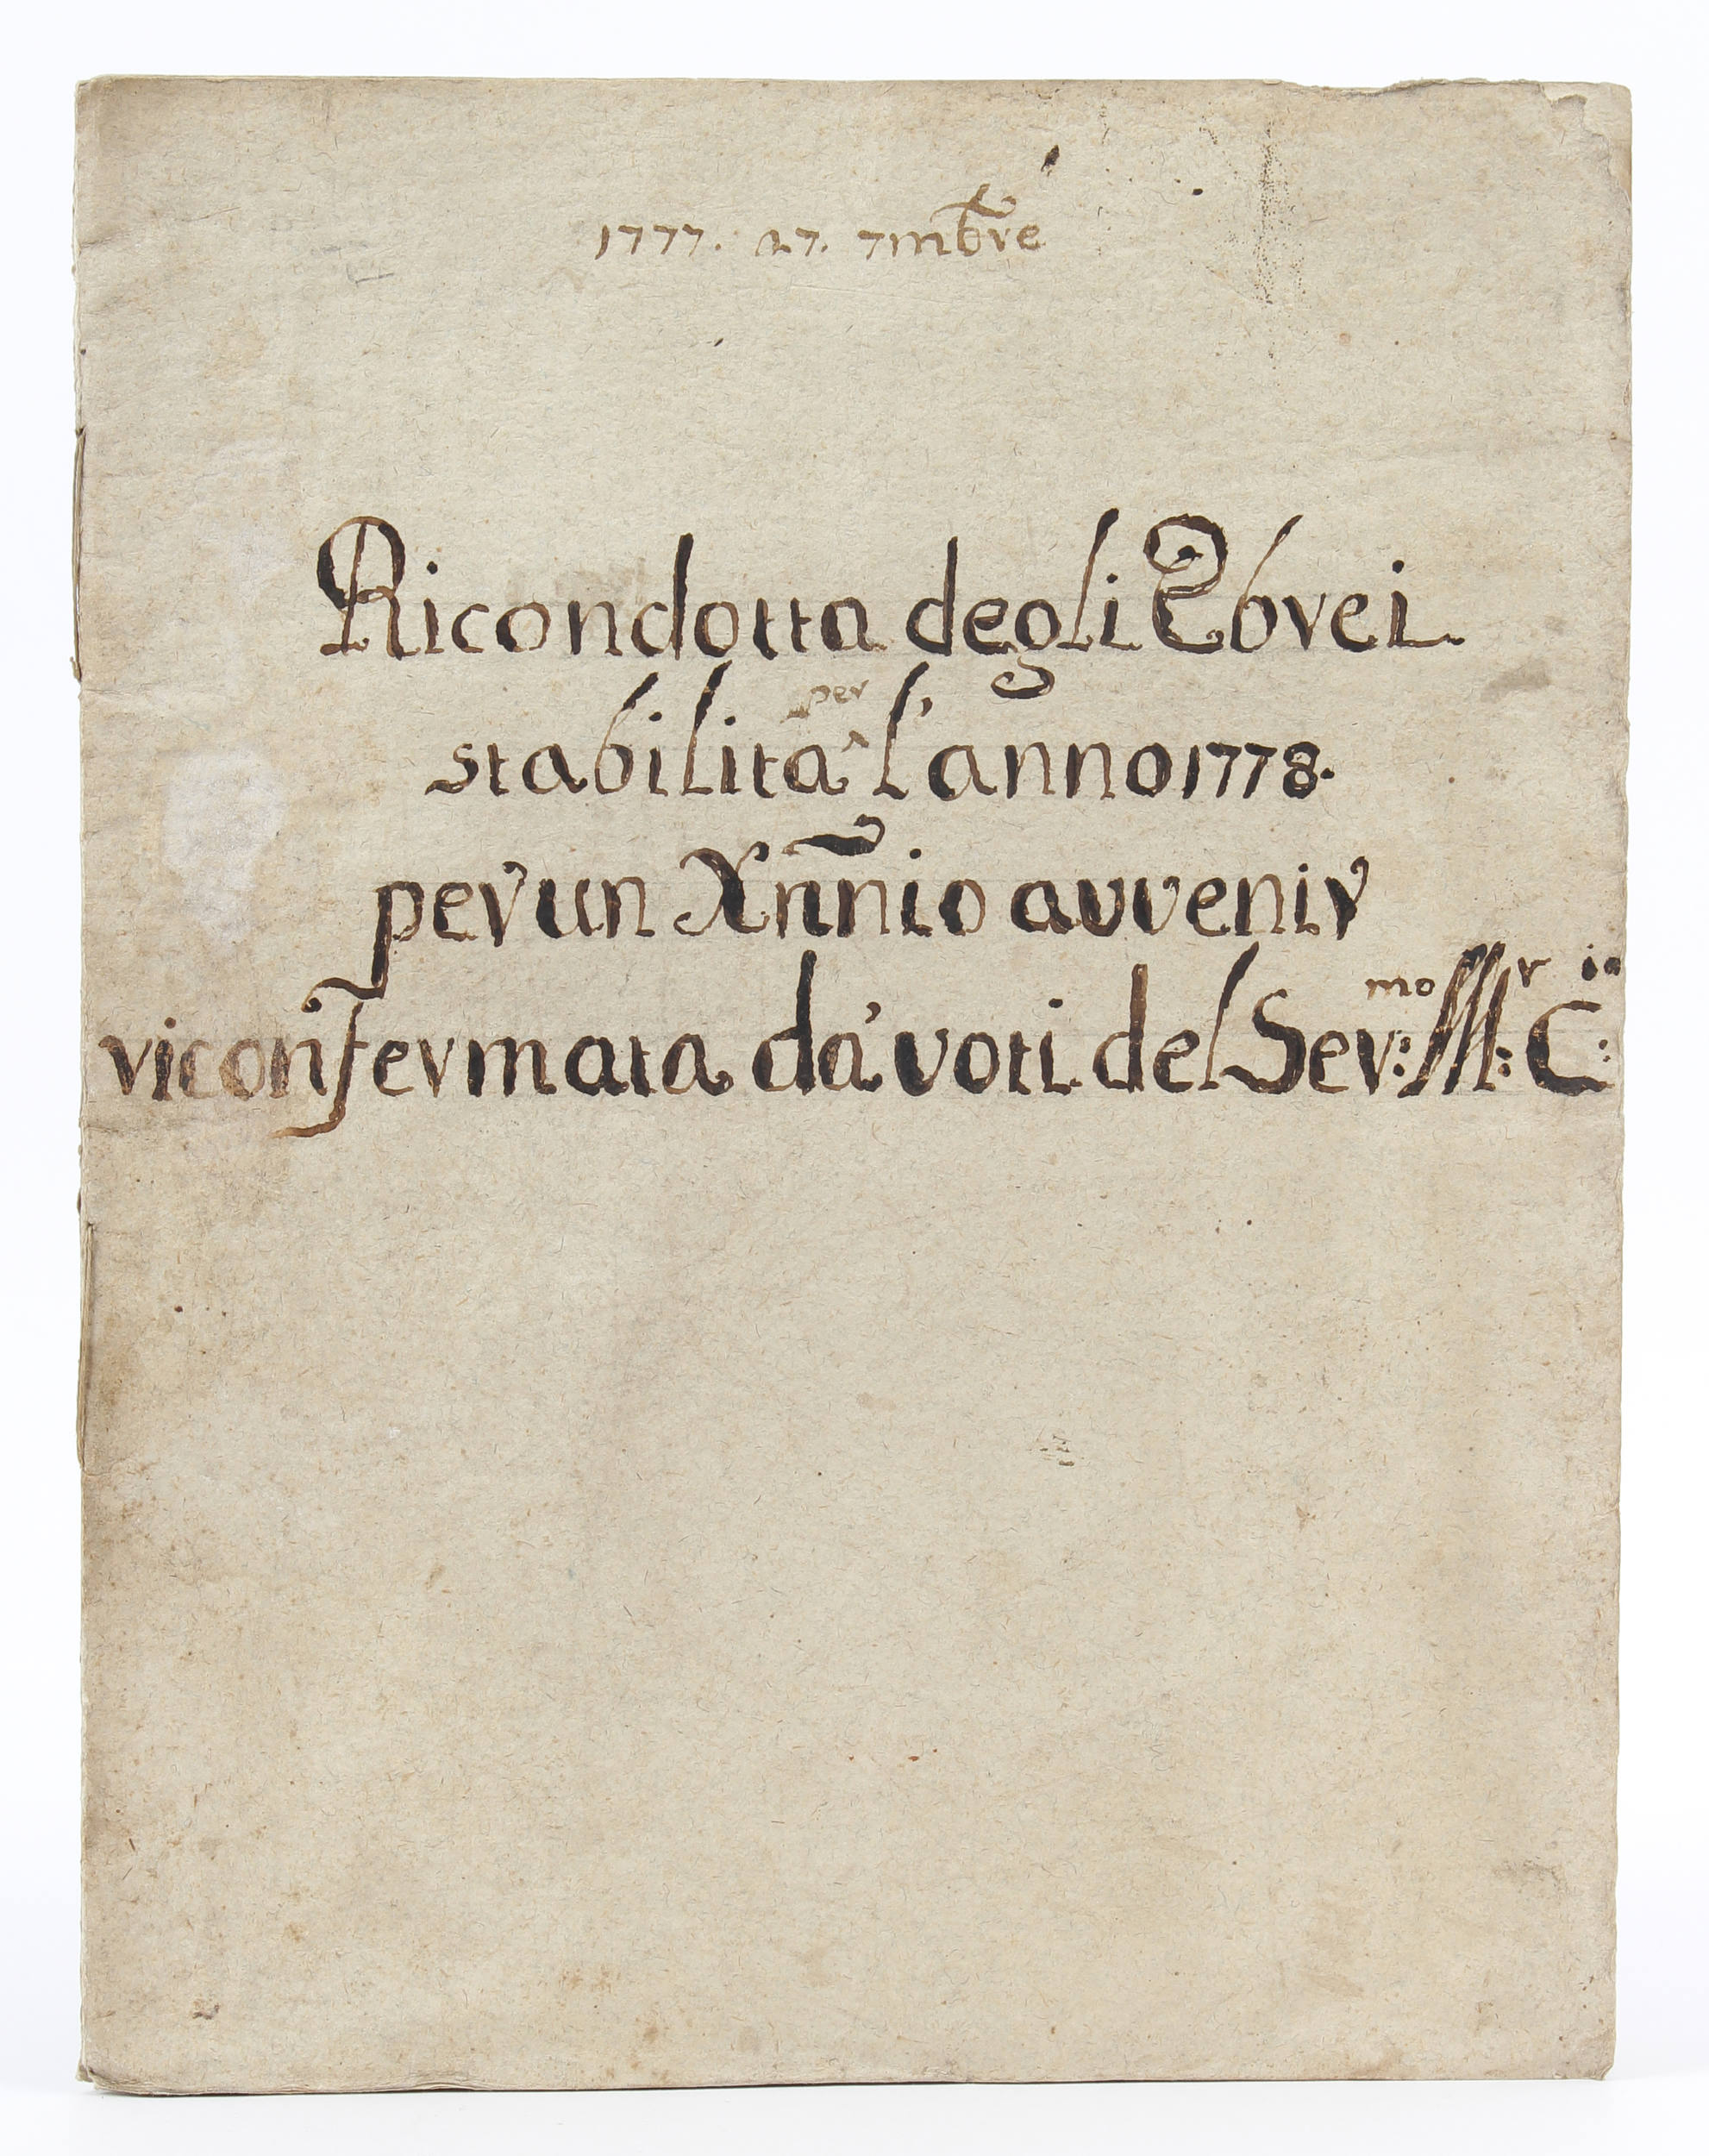 1777. a 7. 7mbre
Ricondotta degli Ebrei
per
stabilita^ l'anno 1778.
per un Xnñio avvenir
riconfermata da' voti del Ser:mo M:r C:io